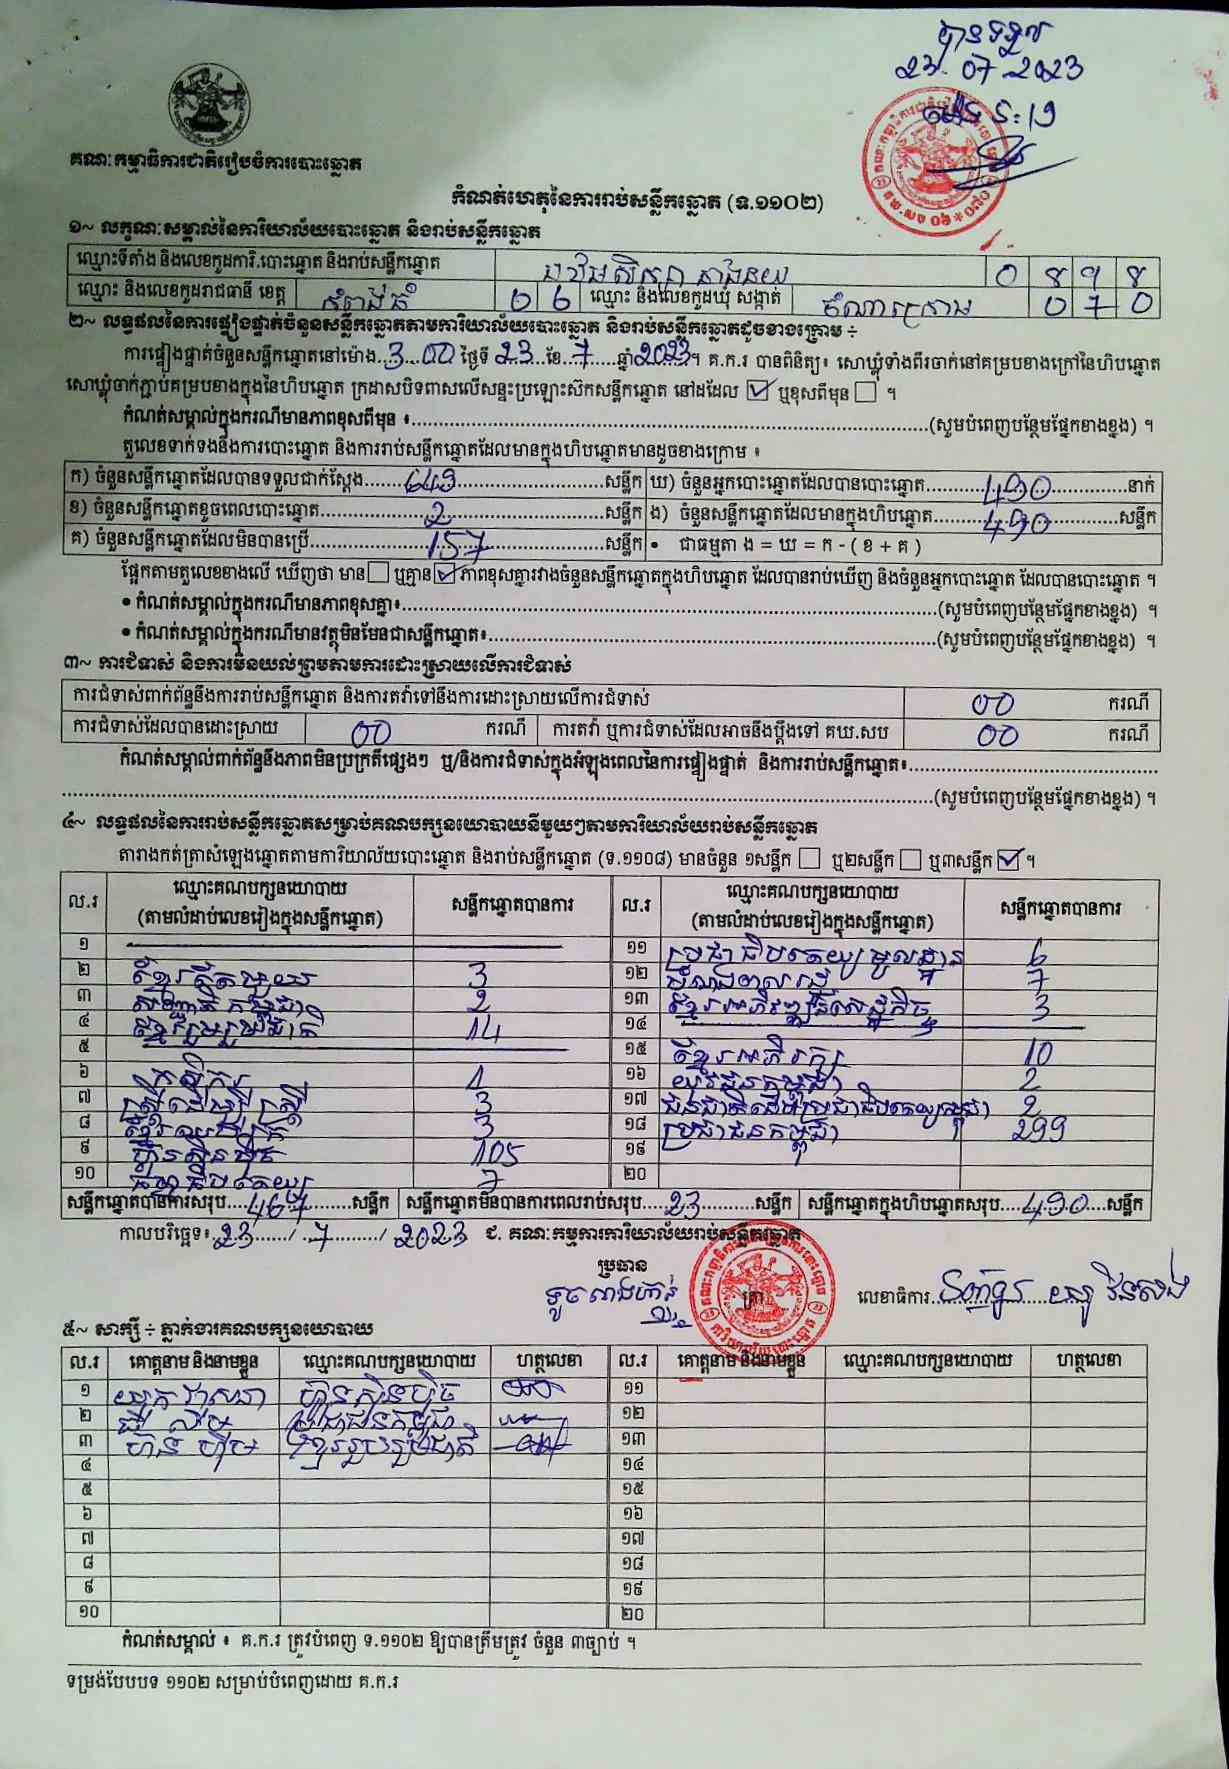 បានទទួល
23.07.2023
គណៈកម្មាធិការជាតិរៀបចំការបោះឆ្នោត
កំណត់ហេតុនៃការរាប់សន្លឹកឆ្នោត (ទ.១១០២)
១~ លក្ខណៈសម្គាល់នៃការិយាល័យបោះឆ្នោត និងរាប់សន្លឹកឆ្នោត
ឈ្មោះទីតាំង និងលេខកូដការិ.បោះឆ្នោត និងរាប់សន្លឹកឆ្នោត
ឈ្មោះ និងលេខកូដរាជធានី ខេត្ត កំពង់ធំ 0 6 ឈ្មោះ និងលេខកូដឃុំ សង្កាត់ ចំណាក្រោម 0 7 0
២~ លទ្ធផលនៃការផ្ទៀងផ្ទាត់ចំនួនសន្លឹកឆ្នោតតាមការិយាល័យបោះឆ្នោត និងរាប់សន្លឹកឆ្នោតដូចខាងក្រោម ÷
ការផ្ទៀងផ្ទាត់ចំនួនសន្លឹកឆ្នោតនៅម៉ោង 3 00 ថ្ងៃទី 23 ខែ 7 ឆ្នាំ 2023។ គ.ក.រ បានពិនិត្យ៖ សោឃ្លុំទាំងពីរចាក់នៅគម្របខាងក្រៅនៃហិបឆ្នោត
សោឃ្លុំចាក់ភ្ជាប់គម្របខាងក្នុងនៃហិបឆ្នោត ក្រដាសបិទពាសលើសន្ទះប្រឡោះស៊កសន្លឹកឆ្នោត នៅដដែល ☑ ឬខុសពីមុន ☐ ។
កំណត់សម្គាល់ក្នុងករណីមានភាពខុសពីមុន ៖ (សូមបំពេញបន្ថែមផ្នែកខាងខ្នង) ។
តួលេខទាក់ទងនឹងការបោះឆ្នោត និងការរាប់សន្លឹកឆ្នោតដែលមានក្នុងហិបឆ្នោតមានដូចខាងក្រោម ៖
ក) ចំនួនសន្លឹកឆ្នោតដែលបានទទួលជាក់ស្តែង 649 សន្លឹក ឃ) ចំនួនអ្នកបោះឆ្នោតដែលបានបោះឆ្នោត 490 នាក់
ខ) ចំនួនសន្លឹកឆ្នោតខូចពេលបោះឆ្នោត 2 សន្លឹក ង) ចំនួនសន្លឹកឆ្នោតដែលមានក្នុងហិបឆ្នោត 490 សន្លឹក
គ) ចំនួនសន្លឹកឆ្នោតដែលមិនបានប្រើ 157 សន្លឹក • ជាធម្មតា ង = ឃ = ក - ( ខ + គ )
ផ្អែកតាមតួលេខខាងលើ ឃើញថា មាន ☐ ឬគ្មាន ☑ ភាពខុសគ្នារវាងចំនួនសន្លឹកឆ្នោតក្នុងហិបឆ្នោត ដែលបានរាប់ឃើញ និងចំនួនអ្នកបោះឆ្នោត ដែលបានបោះឆ្នោត ។
• កំណត់សម្គាល់ក្នុងករណីមានភាពខុសគ្នា៖ (សូមបំពេញបន្ថែមផ្នែកខាងខ្នង) ។
• កំណត់សម្គាល់ក្នុងករណីមានវត្ថុមិនមែនជាសន្លឹកឆ្នោត៖ (សូមបំពេញបន្ថែមផ្នែកខាងខ្នង) ។
៣~ ការជំទាស់ និងការមិនយល់ព្រមតាមការដោះស្រាយលើការជំទាស់
ការជំទាស់ពាក់ព័ន្ធនឹងការរាប់សន្លឹកឆ្នោត និងការតវ៉ាទៅនឹងការដោះស្រាយលើការជំទាស់ 00 ករណី
ការជំទាស់ដែលបានដោះស្រាយ 00 ករណី ការតវ៉ា ឬការជំទាស់ដែលអាចនឹងប្តឹងទៅ គឃ.សប 00 ករណី
កំណត់សម្គាល់ពាក់ព័ន្ធនឹងភាពមិនប្រក្រតីផ្សេងៗ ឬ/និងការជំទាស់ក្នុងអំឡុងពេលនៃការផ្ទៀងផ្ទាត់ និងការរាប់សន្លឹកឆ្នោត៖
(សូមបំពេញបន្ថែមផ្នែកខាងខ្នង) ។
៤~ លទ្ធផលនៃការរាប់សន្លឹកឆ្នោតសម្រាប់គណបក្សនយោបាយនីមួយៗតាមការិយាល័យរាប់សន្លឹកឆ្នោត
តារាងកត់ត្រាសំឡេងឆ្នោតតាមការិយាល័យបោះឆ្នោត និងរាប់សន្លឹកឆ្នោត (ទ.១១០៨) មានចំនួន ១សន្លឹក ☐ ឬ២សន្លឹក ☐ ឬ៣សន្លឹក ☑ ។
ល.រ ឈ្មោះគណបក្សនយោបាយ (តាមលំដាប់លេខរៀងក្នុងសន្លឹកឆ្នោត) សន្លឹកឆ្នោតបានការ ល.រ ឈ្មោះគណបក្សនយោបាយ (តាមលំដាប់លេខរៀងក្នុងសន្លឹកឆ្នោត) សន្លឹកឆ្នោតបានការ
១ ១១ ប្រជាធិបតេយ្យមូលដ្ឋាន 6
២ ខ្មែរតែមួយ 3 ១២ 7
៣ 2 ១៣ ខ្មែរអភិវឌ្ឍន៍សេដ្ឋកិច្ច 3
៤ ខ្មែររួបរួមជាតិ 14 ១៤
៥ ១៥ ខ្មែរអភិរក្ស 10
៦ កសិករ 1 ១៦ យុវជនកម្ពុជា 2
៧ ស្ត្រីដើម្បីស្ត្រី 3 ១៧ ជនជាតិដើមប្រជាធិបតេយ្យកម្ពុជា 2
៨ 3 ១៨ ប្រជាជនកម្ពុជា 299
៩ ហ៊្វុនស៊ិនប៉ិច 105 ១៩
១០ 7 ២០
សន្លឹកឆ្នោតបានការសរុប 467 សន្លឹក សន្លឹកឆ្នោតមិនបានការពេលរាប់សរុប 23 សន្លឹក សន្លឹកឆ្នោតក្នុងហិបឆ្នោតសរុប 490 សន្លឹក
កាលបរិច្ឆេទ៖ 23 / 7 / 2023 ជ. គណៈកម្មការការិយាល័យរាប់សន្លឹកឆ្នោត
ប្រធាន
ត្រា
លេខាធិការ
៥~ សាក្សី ÷ ភ្នាក់ងារគណបក្សនយោបាយ
ល.រ គោត្តនាម និងនាមខ្លួន ឈ្មោះគណបក្សនយោបាយ ហត្ថលេខា ល.រ គោត្តនាម និងនាមខ្លួន ឈ្មោះគណបក្សនយោបាយ ហត្ថលេខា
១ ហ៊្វុនស៊ិនប៉ិច ១១
២ ប្រជាជនកម្ពុជា ១២
៣ ខ្មែររួបរួមជាតិ ១៣
៤ ១៤
៥ ១៥
៦ ១៦
៧ ១៧
៨ ១៨
៩ ១៩
១០ ២០
កំណត់សម្គាល់ ៖ គ.ក.រ ត្រូវបំពេញ ទ.១១០២ ឱ្យបានត្រឹមត្រូវ ចំនួន ៣ច្បាប់ ។
ទម្រង់បែបបទ ១១០២ សម្រាប់បំពេញដោយ គ.ក.រ